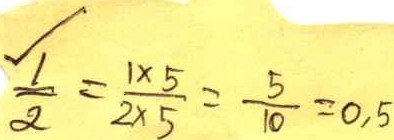 1/2 = 1×5/2×5 = 5/10 = 0,5